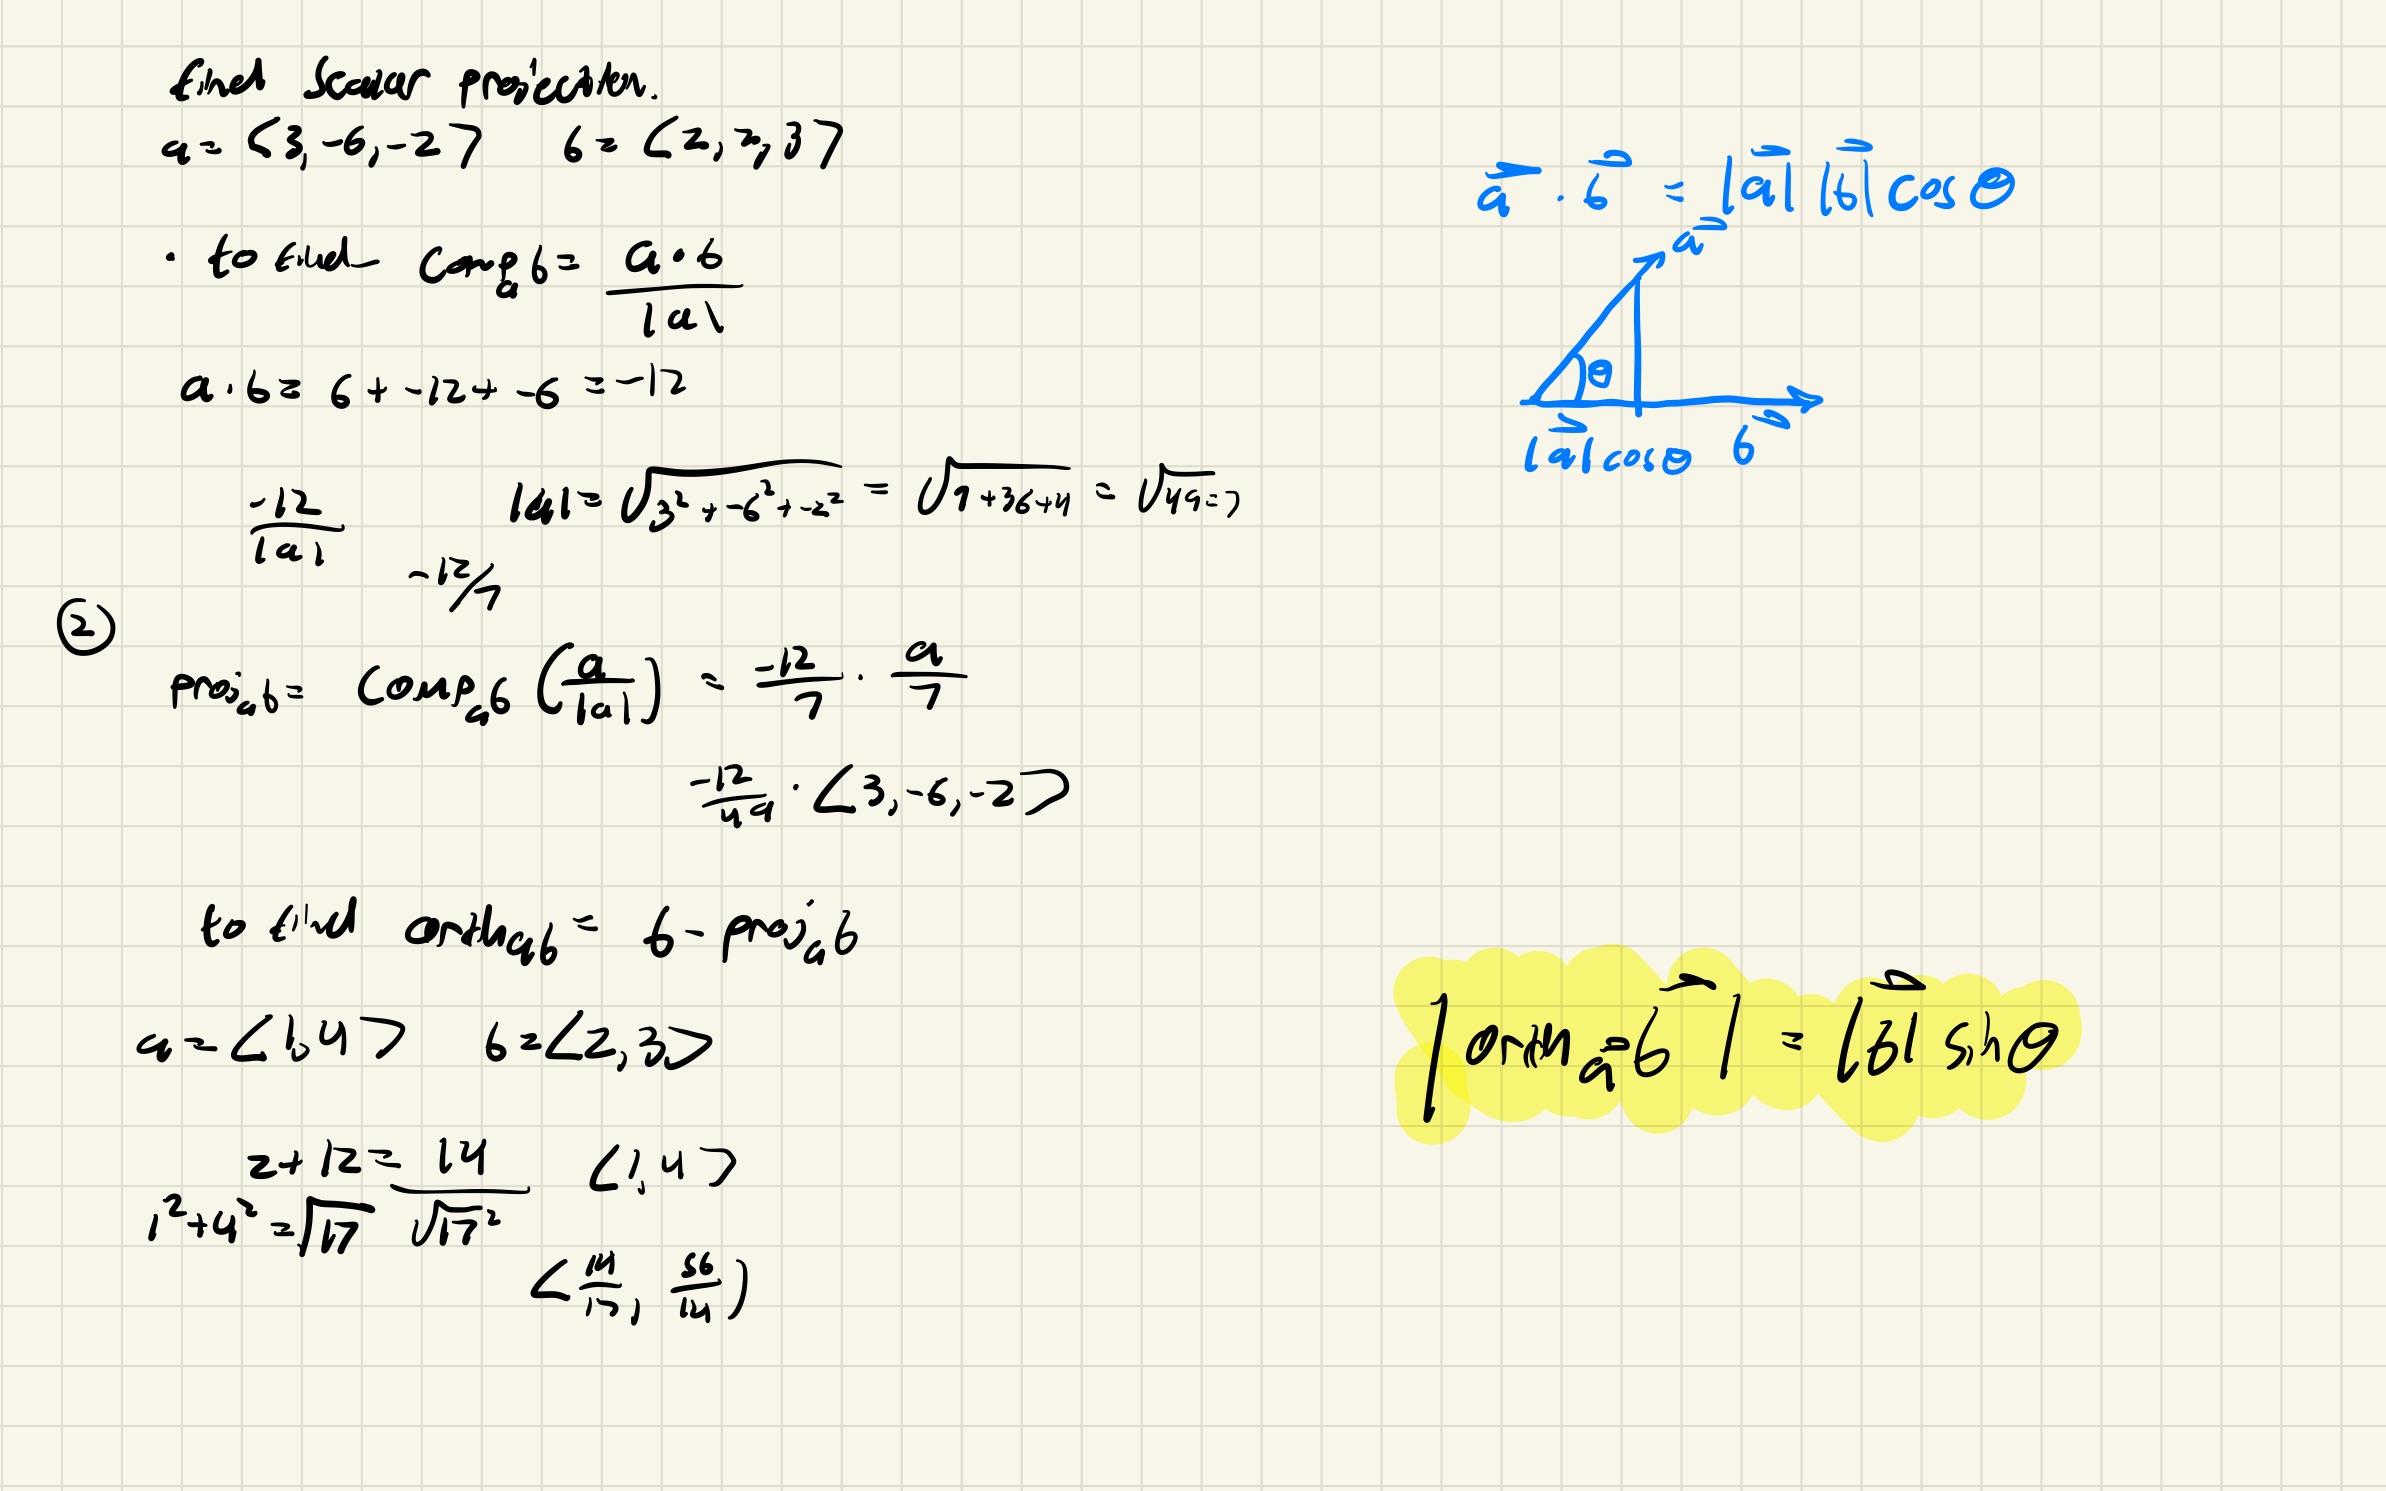 find Scalar projection.
a = <3, -6, -2>   b = <2, 2, 3>
· to find comp_a b = a·b / |a|
a · b = 6 + -12 + -6 = -12
-12 / |a|   |a| = √(3² + -6² + -2²) = √(9 + 36 + 4) = √49 = 7
-12/7
②
proj_a b = comp_a b (a/|a|) = -12/7 · a/7
-12/49 · <3, -6, -2>
to find orth_a b = b - proj_a b
a = <1, 4>   b = <2, 3>
2 + 12 = 14   <1, 4>
1² + 4² = √17   √17²
<14/17, 56/14>
a⃗ · b⃗ = |a⃗| |b⃗| cos θ
a⃗
θ
|a⃗| cos θ   b⃗
|orth_a⃗ b⃗| = |b⃗| sin θ